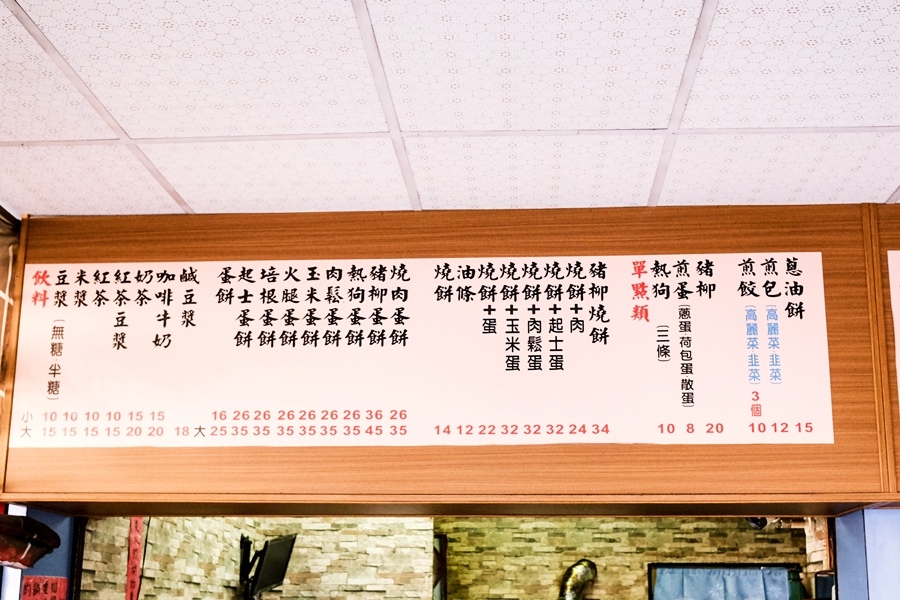 飲料
豆漿(無糖 半糖)
米漿
紅茶
紅茶豆漿
奶茶
咖啡牛奶
鹹豆漿
蛋餅
起士蛋餅
培根蛋餅
火腿蛋餅
玉米蛋餅
肉鬆蛋餅
熱狗蛋餅
豬柳蛋餅
燒肉蛋餅
燒餅
油條
燒餅+蛋
燒餅+玉米蛋
燒餅+肉鬆蛋
燒餅+起士蛋
燒餅+肉
豬柳燒餅
單點類
熱狗(三條)
煎蛋(蔥蛋 荷包蛋 散蛋)
豬柳
煎餃(高麗菜 韭菜)3個
煎包(高麗菜 韭菜)
蔥油餅
小 10 10 10 10 15 15 16 26 26 26 26 26 26 36 26
大 15 15 15 15 20 20 18 大 25 35 35 35 35 35 35 45 35 14 12 22 32 32 32 24 34 10 8 20 10 12 15